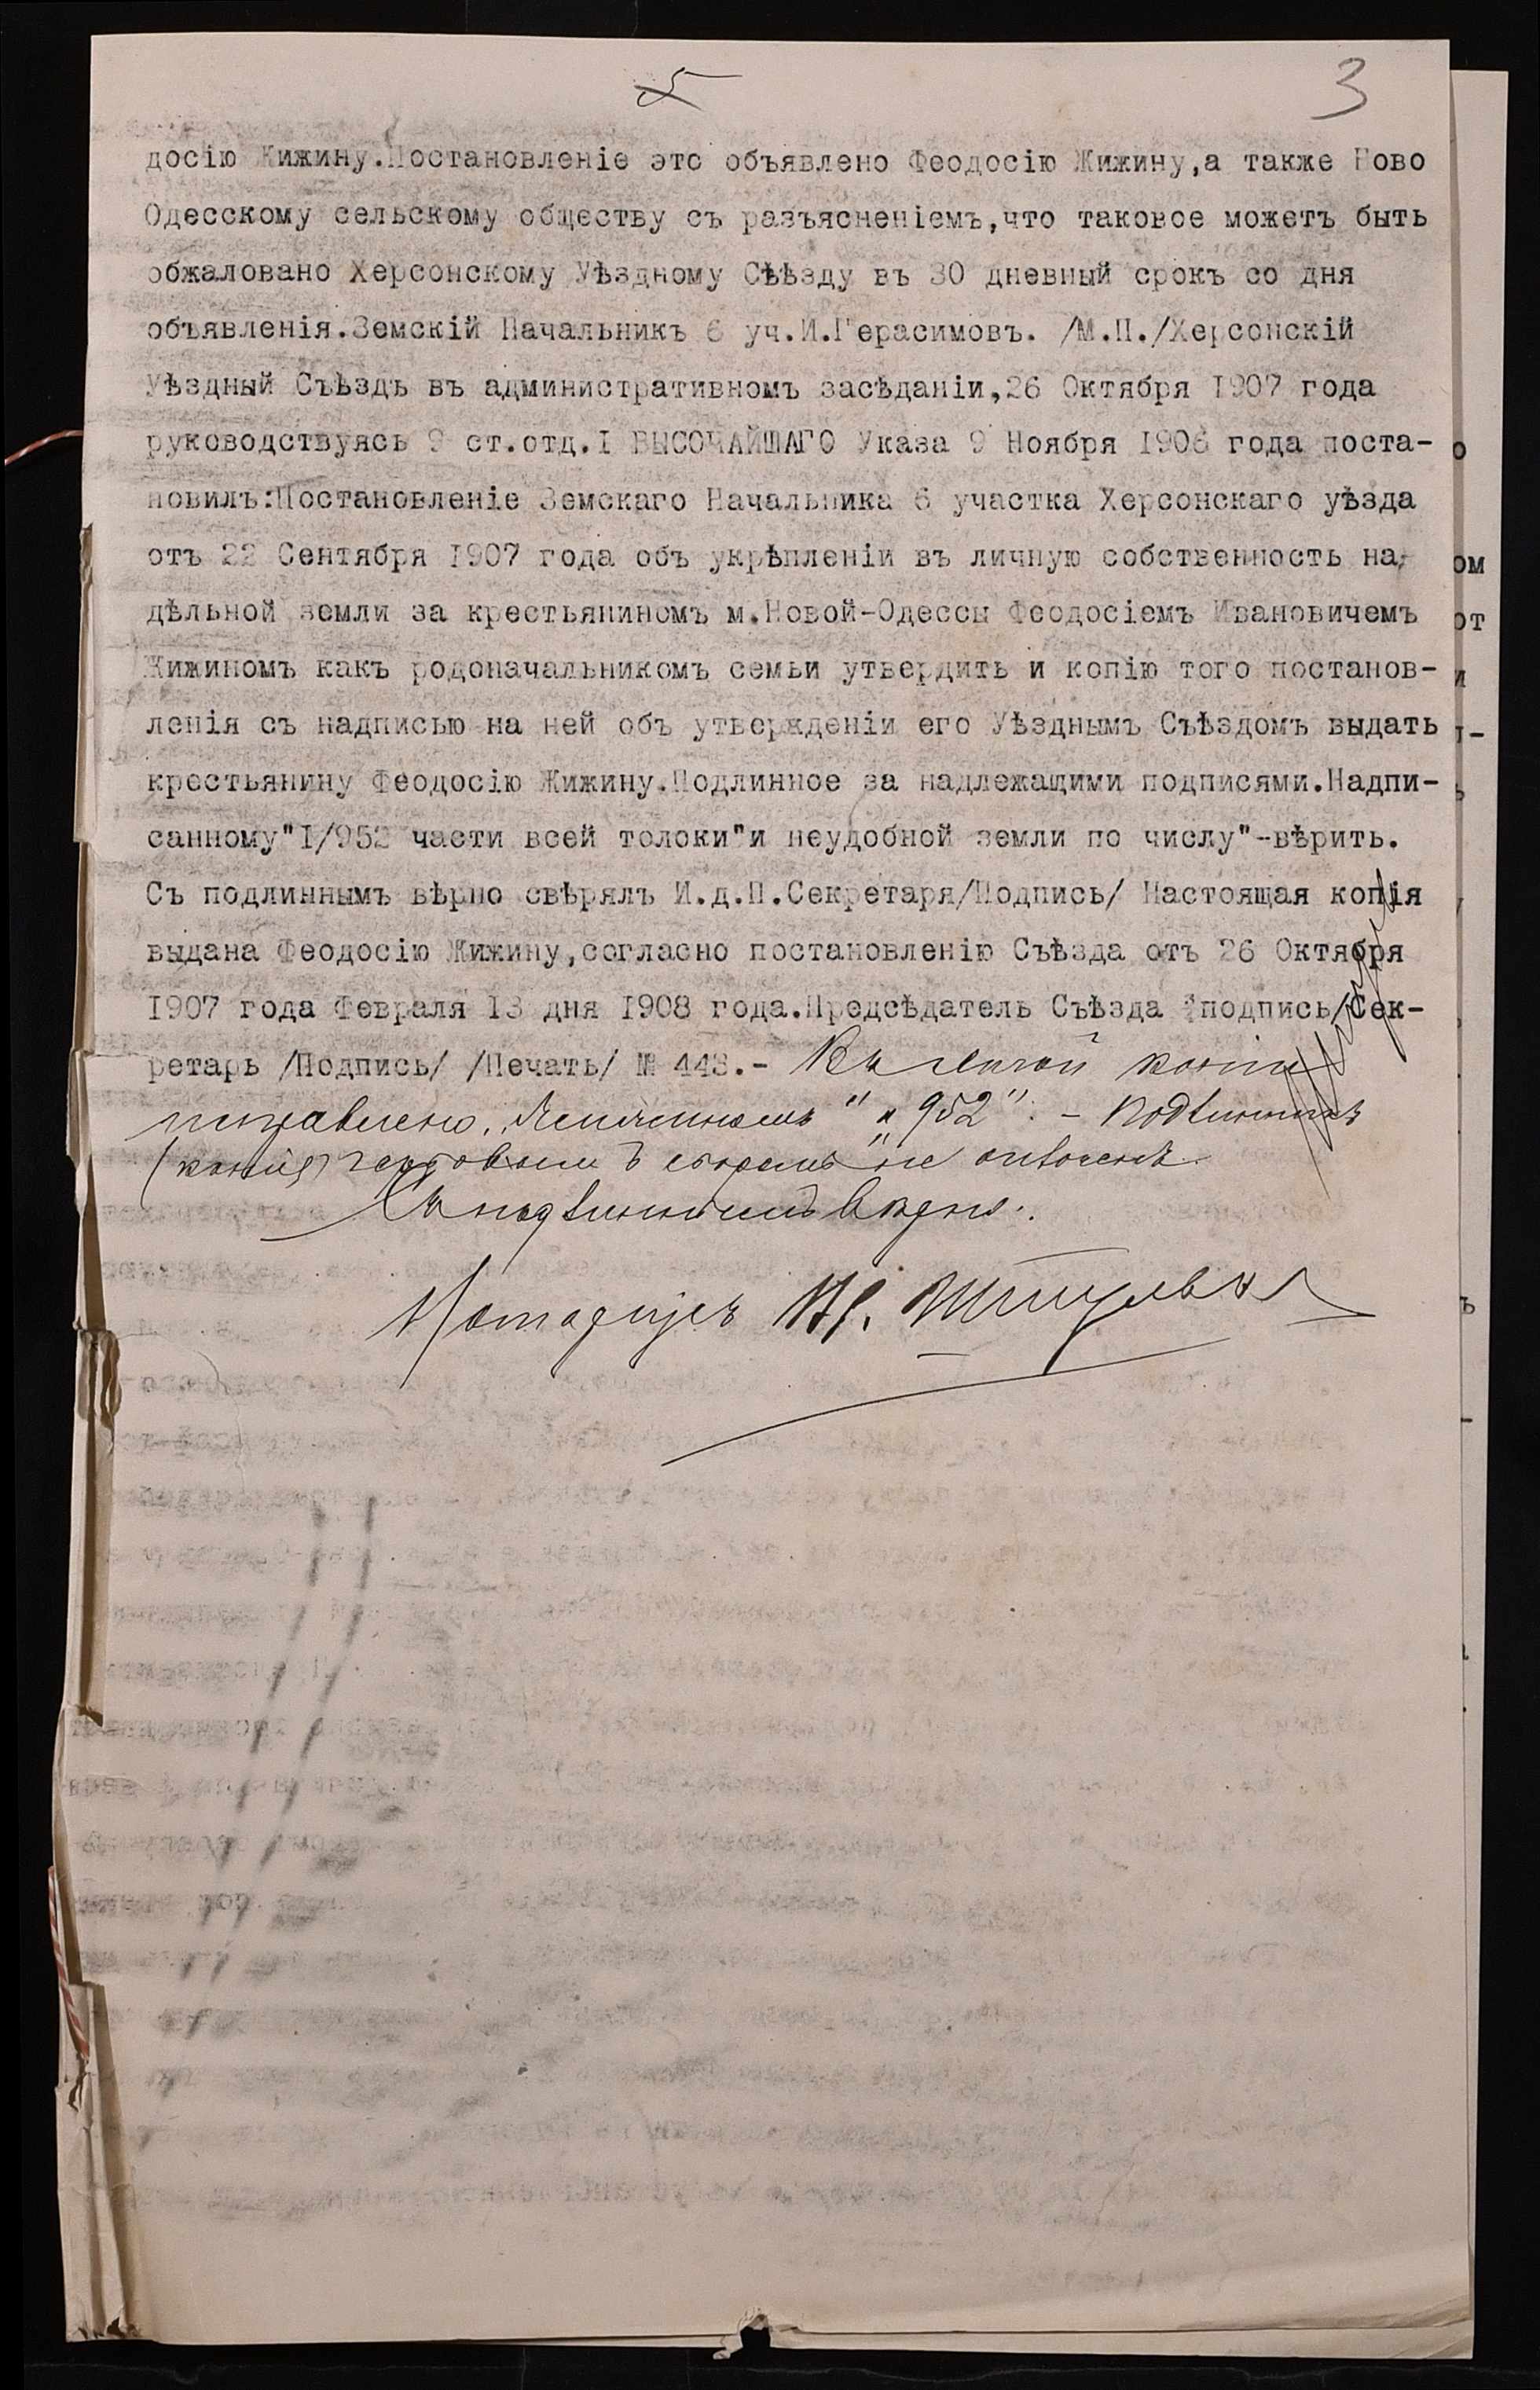 5
3
досію Жижину.Постановленіе это объявлено Феодосію Жижину,а также Ново
Одесскому сельскому обществу съ разъясненіемъ,что таковое можетъ быть
обжаловано Херсонскому Уѣздному Сѣѣзду въ 30 дневный срокъ со дня
объявленія.Земскій Начальникъ 6 уч.И.Герасимовъ. /М.П./Херсонскій
Уѣздный Съѣздъ въ административномъ засѣданіи,26 Октября 1907 года
руководствуясь 9 ст.отд.I ВЫСОЧАЙШАГО Указа 9 Ноября 1906 года поста-
новилъ:Постановленіе Земскаго Начальника 6 участка Херсонскаго уѣзда
отъ 22 Сентября 1907 года объ укрѣпленіи въ личную собственность на-
дѣльной земли за крестьяниномъ м.Новой-Одессы Феодосіемъ Ивановичемъ
Жижиномъ какъ родоначальникомъ семьи утвердить и копію того постанов-
ленія съ надписью на ней объ утвержденіи его Уѣзднымъ Съѣздомъ выдать
крестьянину Феодосію Жижину.Подлинное за надлежащими подписями.Надпи-
санному"I/952 части всей толоки"и неудобной земли по числу"-вѣрить.
Съ подлиннымъ вѣрно свѣрялъ И.д.П.Секретаря/Подпись/ Настоящая копія
выдана Феодосію Жижину,согласно постановленію Съѣзда отъ 26 Октября
1907 года Февраля 13 дня 1908 года.Предсѣдатель Съѣзда /подпись/Сек-
ретарь /Подпись/ /Печать/ № 443.- Въ копіи
"952". - Подлинникъ
(копія) гербовымъ сборомъ не оплаченъ.
Съ подлиннымъ вѣрно.
Нотаріусъ